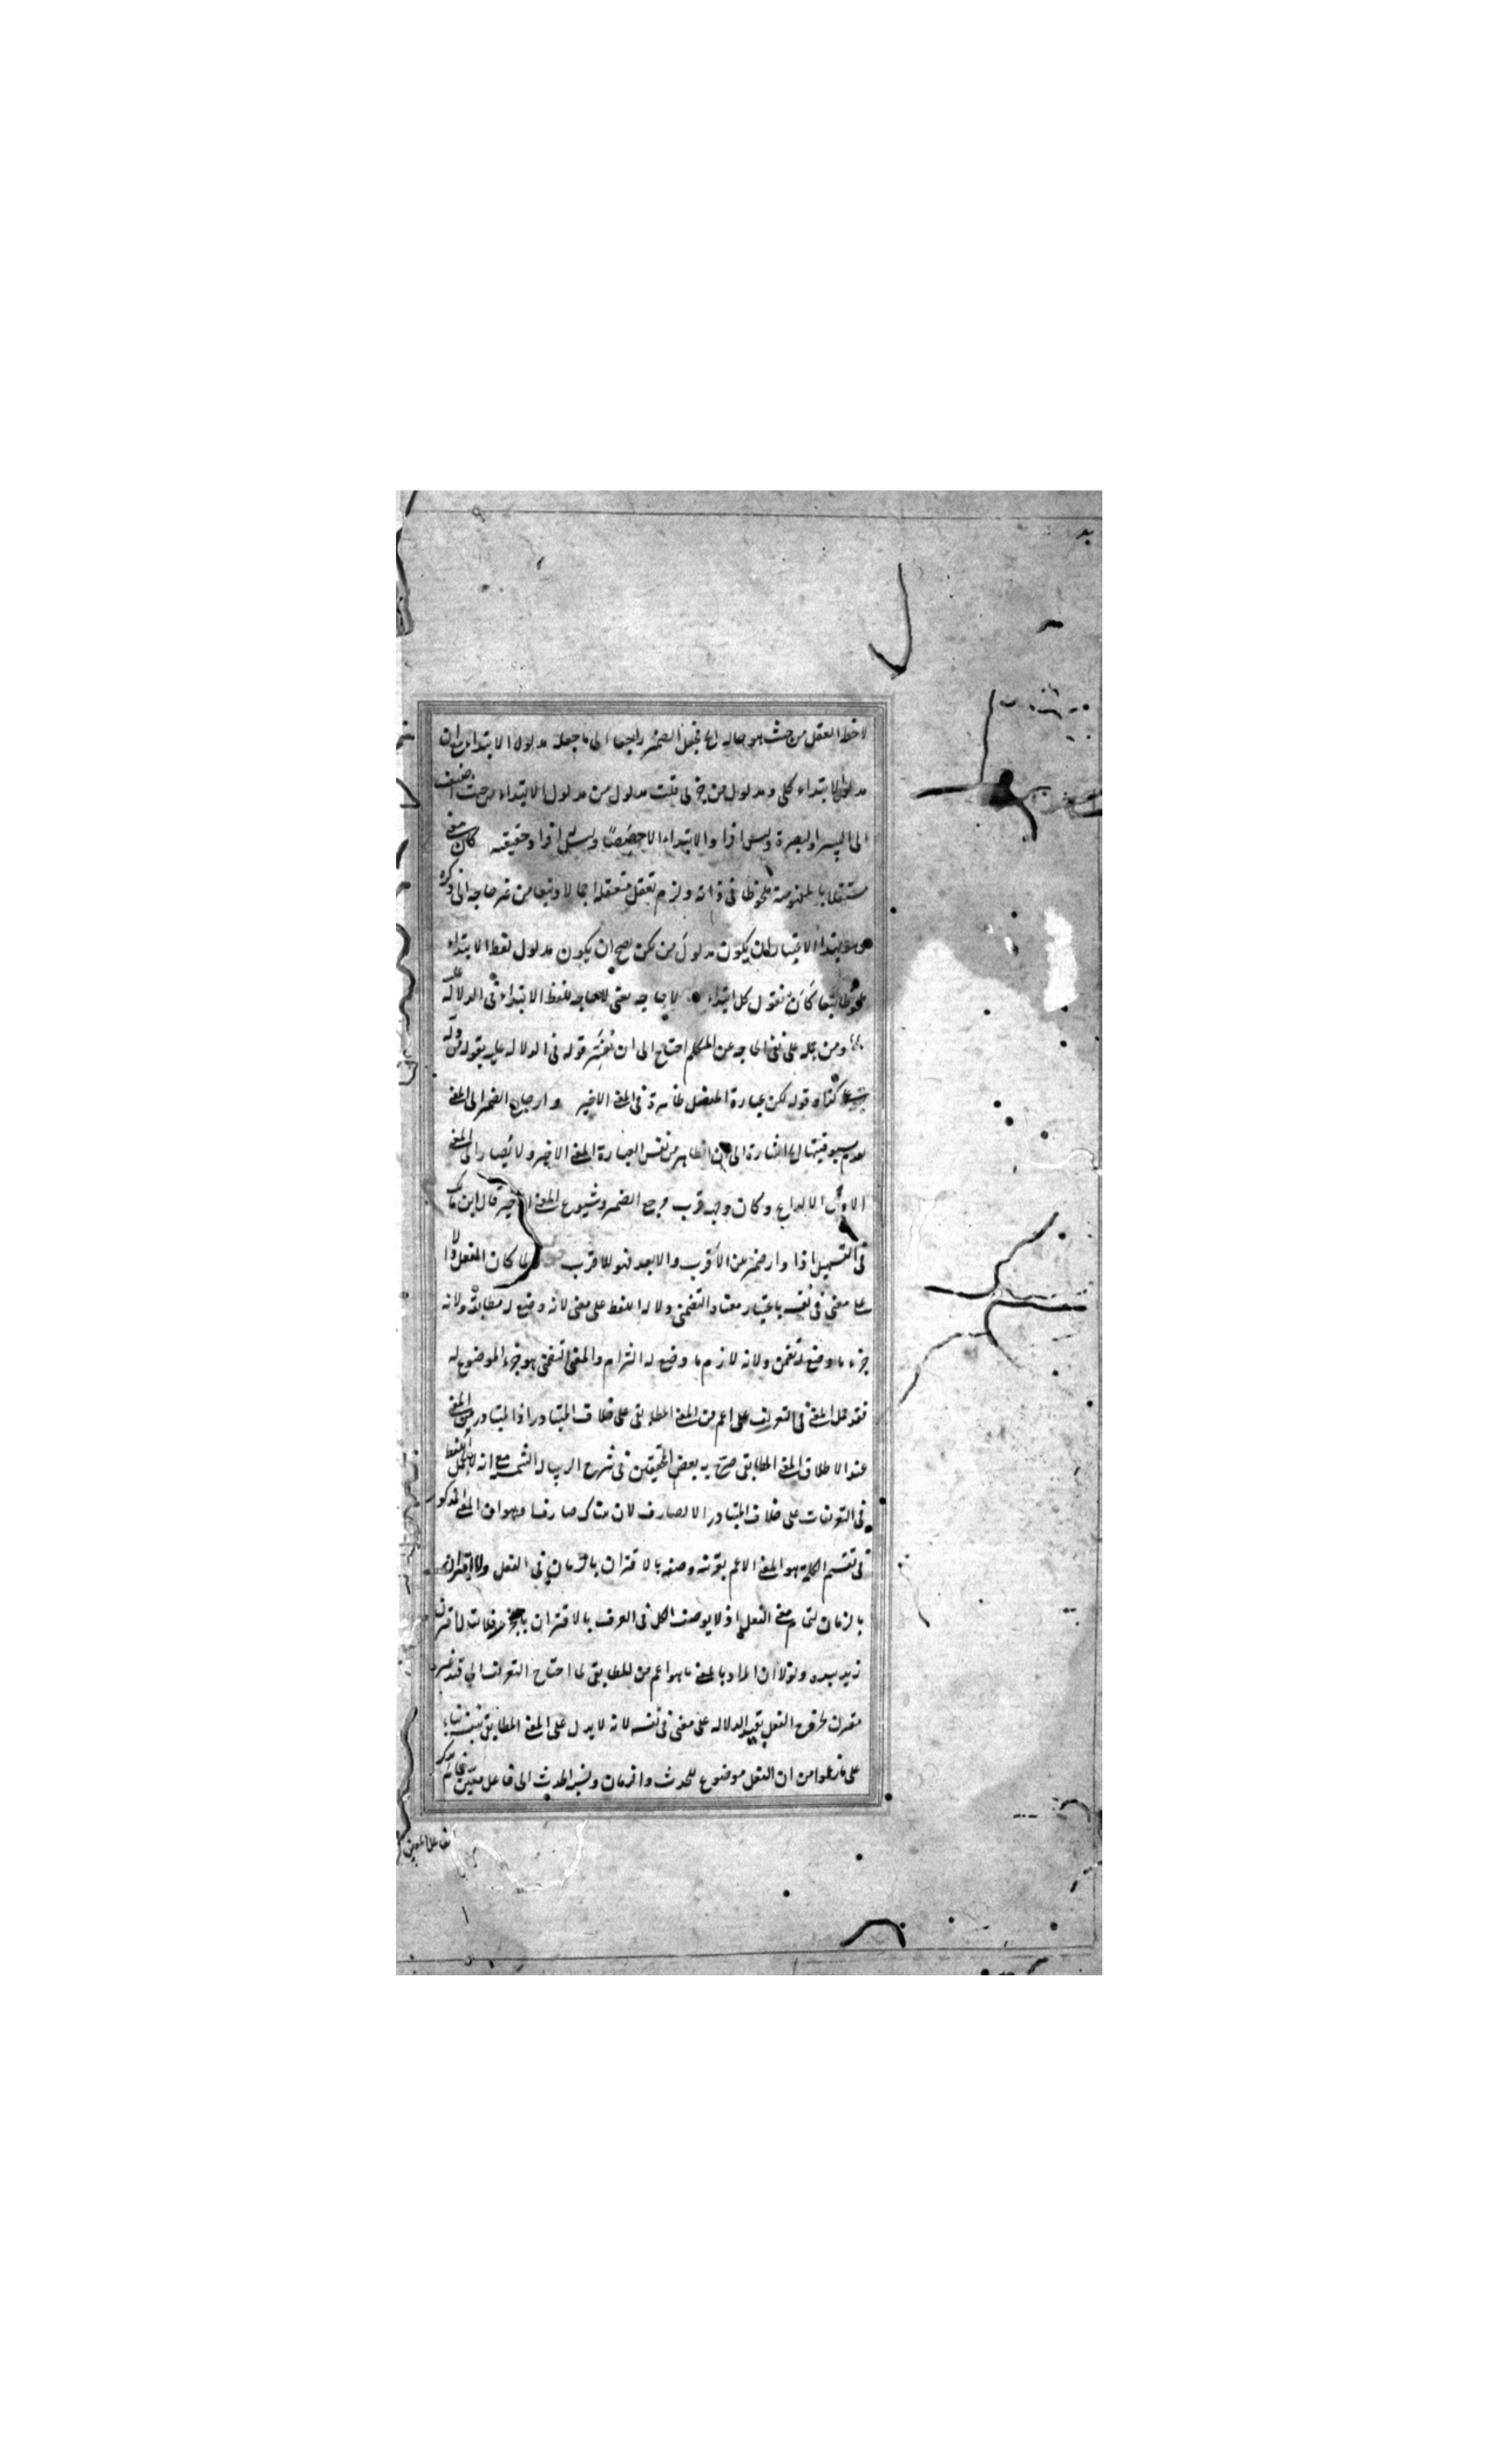 لاحظ العقل من حيث هو حاله اى فجعل الضمير راجعا الى ما جعله مدلول الابتداء مع ان
مدلول الابتداء كلى ومدلول من جزئى قلت مدلول من مدلول الابتداء من حيث اضيف
الى السير والبصرة وليس افرا والابتداء الا حصصا وليس افرا وحقيقته كان معنى
مستقلا بالمفهومية ملحوظا فى ذاته ولزم تعقل متعلقه اجمالا وتبعا من غير حاجة الى ذكره
وهو بهذا الاعتبار لان يكون مدلول من لكن يصح ان يكون مدلول لفظ الابتداء
ملحوظا تبعا كان نقول كل ابتداء لا حاجة يعنى لا حاجة للفظ الابتداء فى الدلالة على
ومن حمله على نفى الحاجة عن المتكلم احتاج الى ان يفسر قوله فى الدلالة عليه بقوله
كذا وقوله لكن عبارة المفصل ظاهرة فى المعنى الاخير وارجاع الضمير الى المعنى
اشارة الى ان الظاهر من نفس العبارة المعنى الاخير ولا يصار الى المعنى
الاول الا لداع وكان وجهه قرب مرجع الضمير وشيوع المعنى الاخير قال ابن مالك
فى التسهيل اذا دار ضمير بين الاقرب والابعد فهو للاقرب ولما كان الفعل دالا
على معنى فى نفسه باعتبار معناه التضمنى دلالة اللفظ على معنى لانه وضع له مطابقة ولانه
جزء ما وضع له تضمن ولانه لازم ما وضع له التزام والمعنى التضمنى هو جزء الموضوع له
فقد حمل المعنى فى التعريف على اعم من المعنى المطابقى على خلاف المتبادر اذ المتبادر من المعنى
عند الاطلاق المعنى المطابقى صرح به بعض المحققين فى شرح الرسالة الشمسية مع انه لا يحمل اللفظ
فى التعريفات على خلاف المتبادر الا لصارف لان هناك صارفا وهو ان المعنى المذكور
فى تقسيم الكلمة هو المعنى الاعم بقرينة وصفه بالاقتران بالزمان فى الفعل ولا اقتران
بالزمان لتمام معنى الفعل اذ لا يوصف الكل فى العرف بالاقتران بالجزء فلا يقال اقترن
زيد بيده ولولا ان المراد بالمعنى ما هو اعم من المطابقى لما احتاج التعريف الى قيد غير
مقترن لخروج الفعل بقيد الدلالة على معنى فى نفسه لانه لا يدل على المعنى المطابقى بنفسه بناء
على ما زعموا من ان الفعل موضوع للحدث والزمان ونسبة الحدث الى فاعل معين